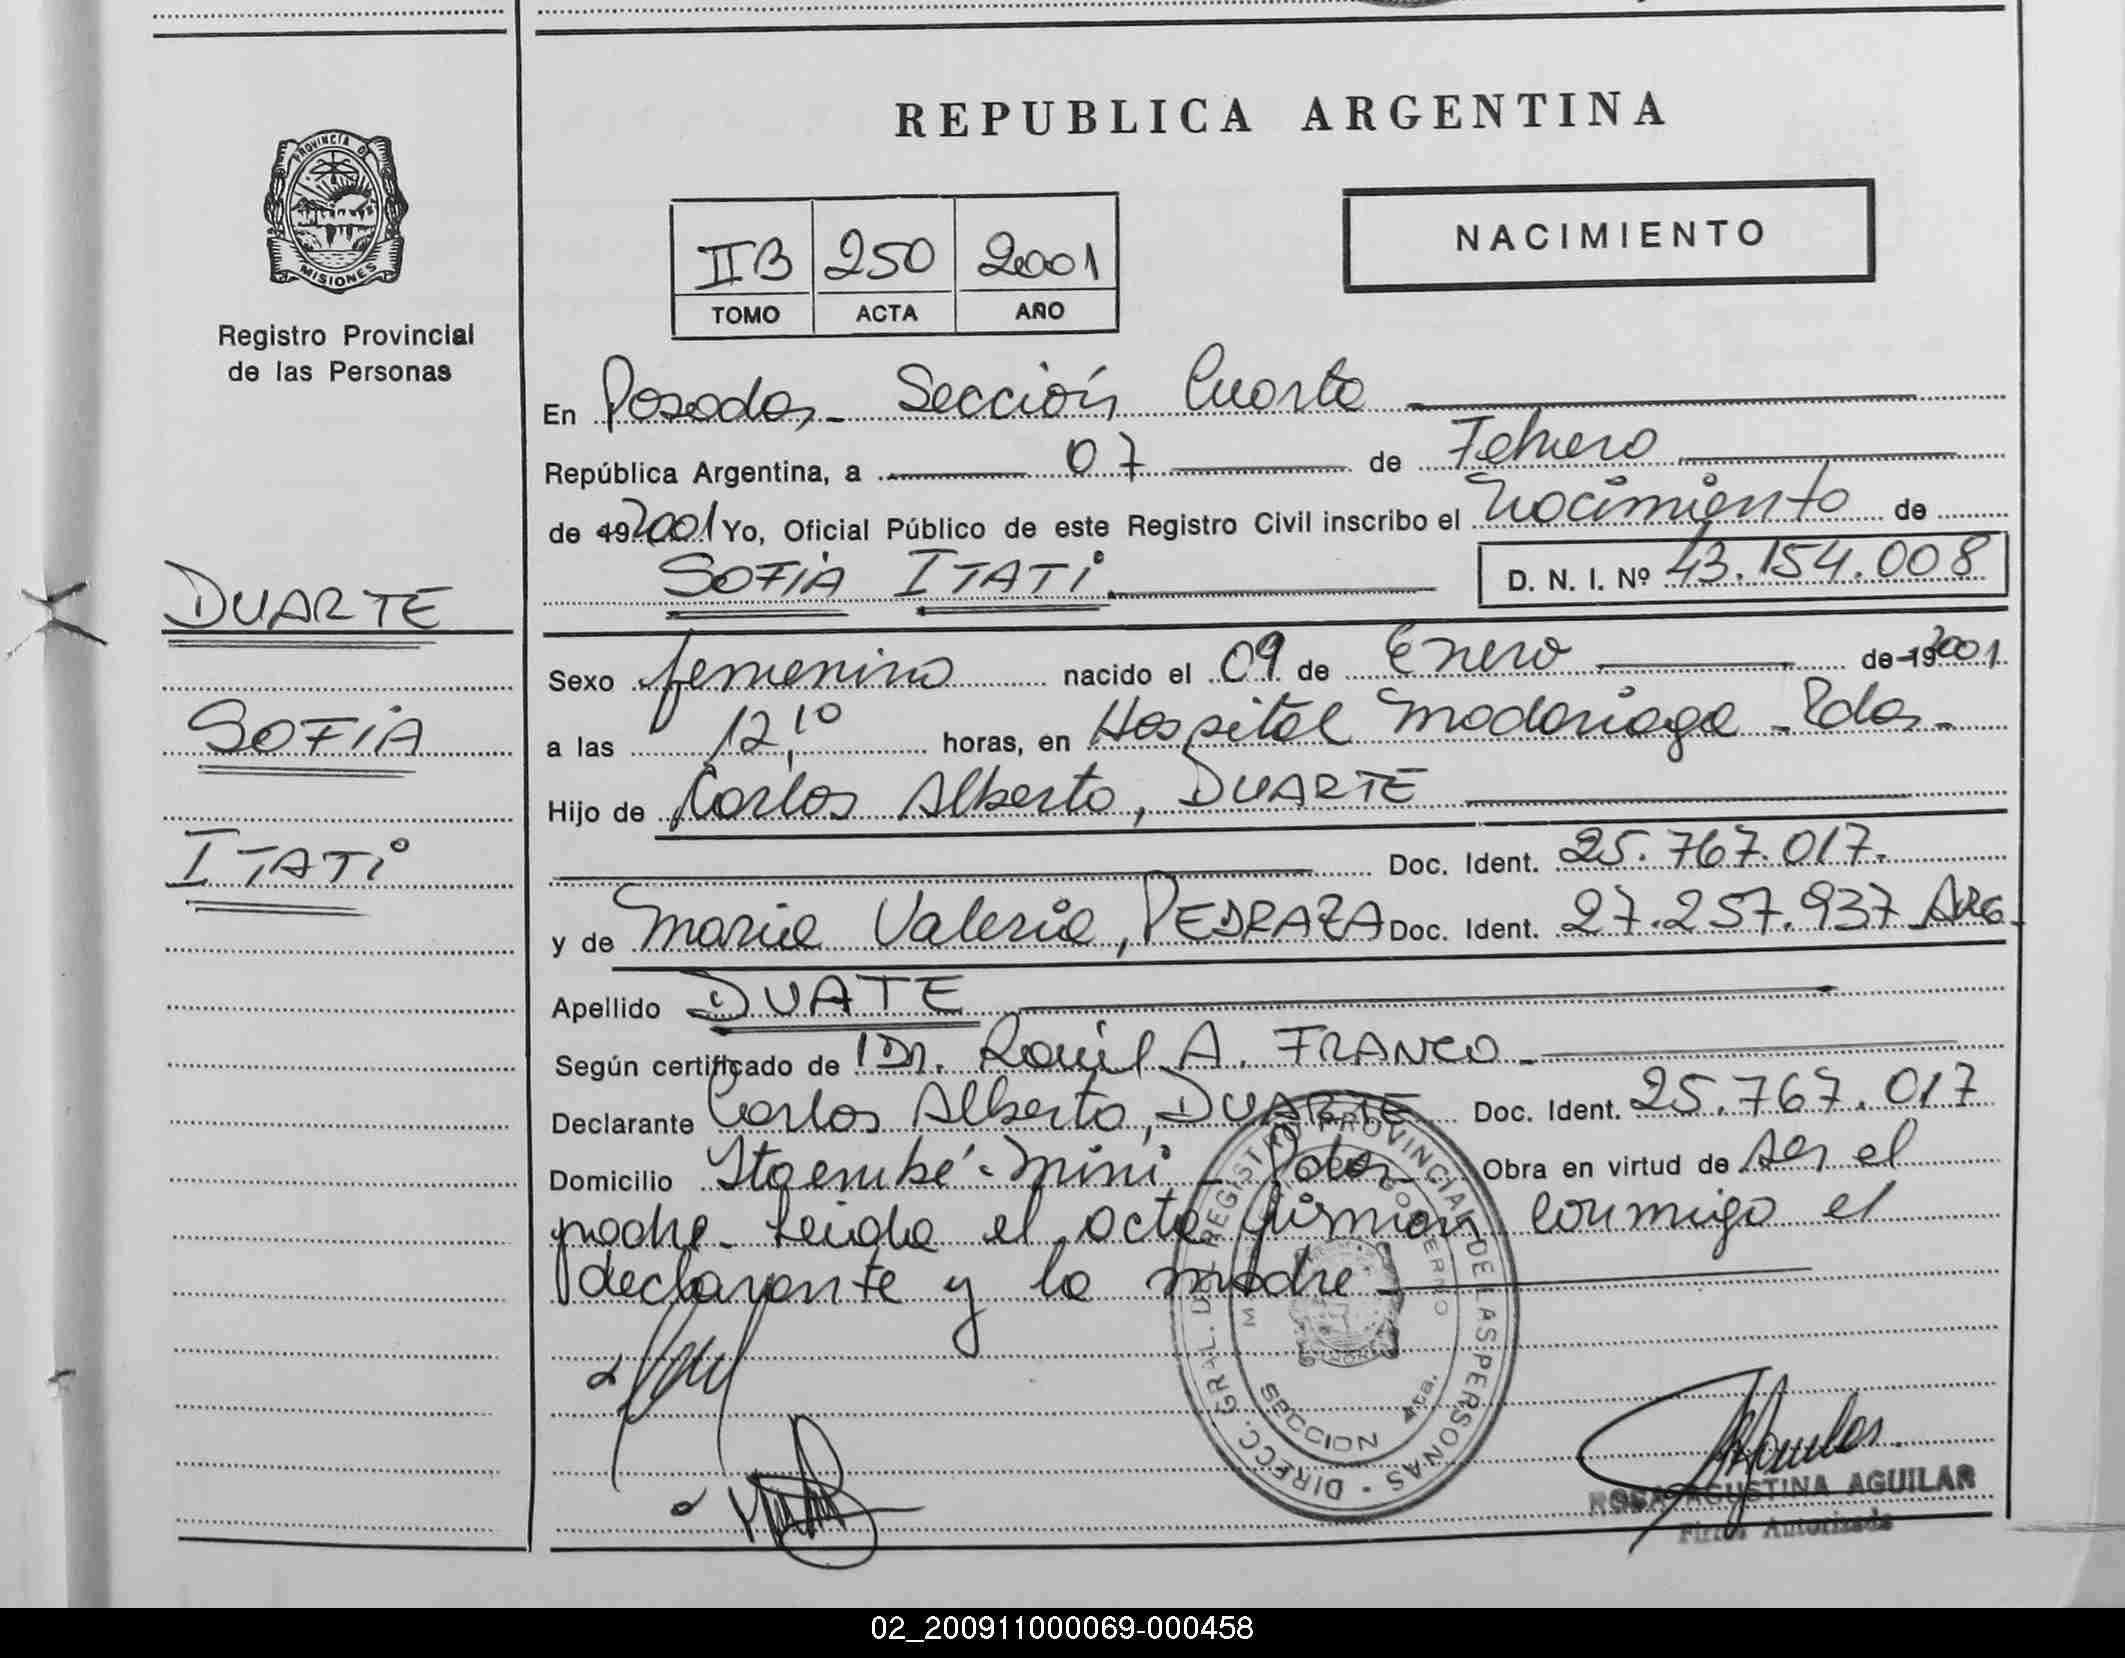 REPUBLICA ARGENTINA
PROVINCIA D
MISIONES
Registro Provincial
de las Personas
IIB 250 2001
TOMO ACTA AÑO
NACIMIENTO
En Posadas - Sección Cuarta
República Argentina, a 07 de Febrero
de 19 2001 Yo, Oficial Público de este Registro Civil inscribo el Nacimiento de
SOFIA ITATI
D. N. I. Nº 43.154.008
DUARTE
SOFIA
ITATI
Sexo femenino nacido el 09 de Enero de 19 2001
a las 12,10 horas, en Hospital Madariaga - Pdas -
Hijo de Carlos Alberto, DUARTE
Doc. Ident. 25.767.017.
y de Maria Valeria, PEDRAZA Doc. Ident. 27.257.937 ARG-
Apellido DUATE
Según certificado de Dr. Raúl A. FRANCO -
Declarante Carlos Alberto, DUARTE Doc. Ident. 25.767.017
Domicilio Itaembé-Mini - Pdas - Obra en virtud de ser el
padre - Leida el acta firman conmigo el
declarante y la madre -
DIRECC. GRAL. DEL REGISTRO PROVINCIAL DE LAS PERSONAS
GOBIERNO
SECCION 4ta.
ROSA AGUSTINA AGUILAR
Firma Autorizada
02_200911000069-000458